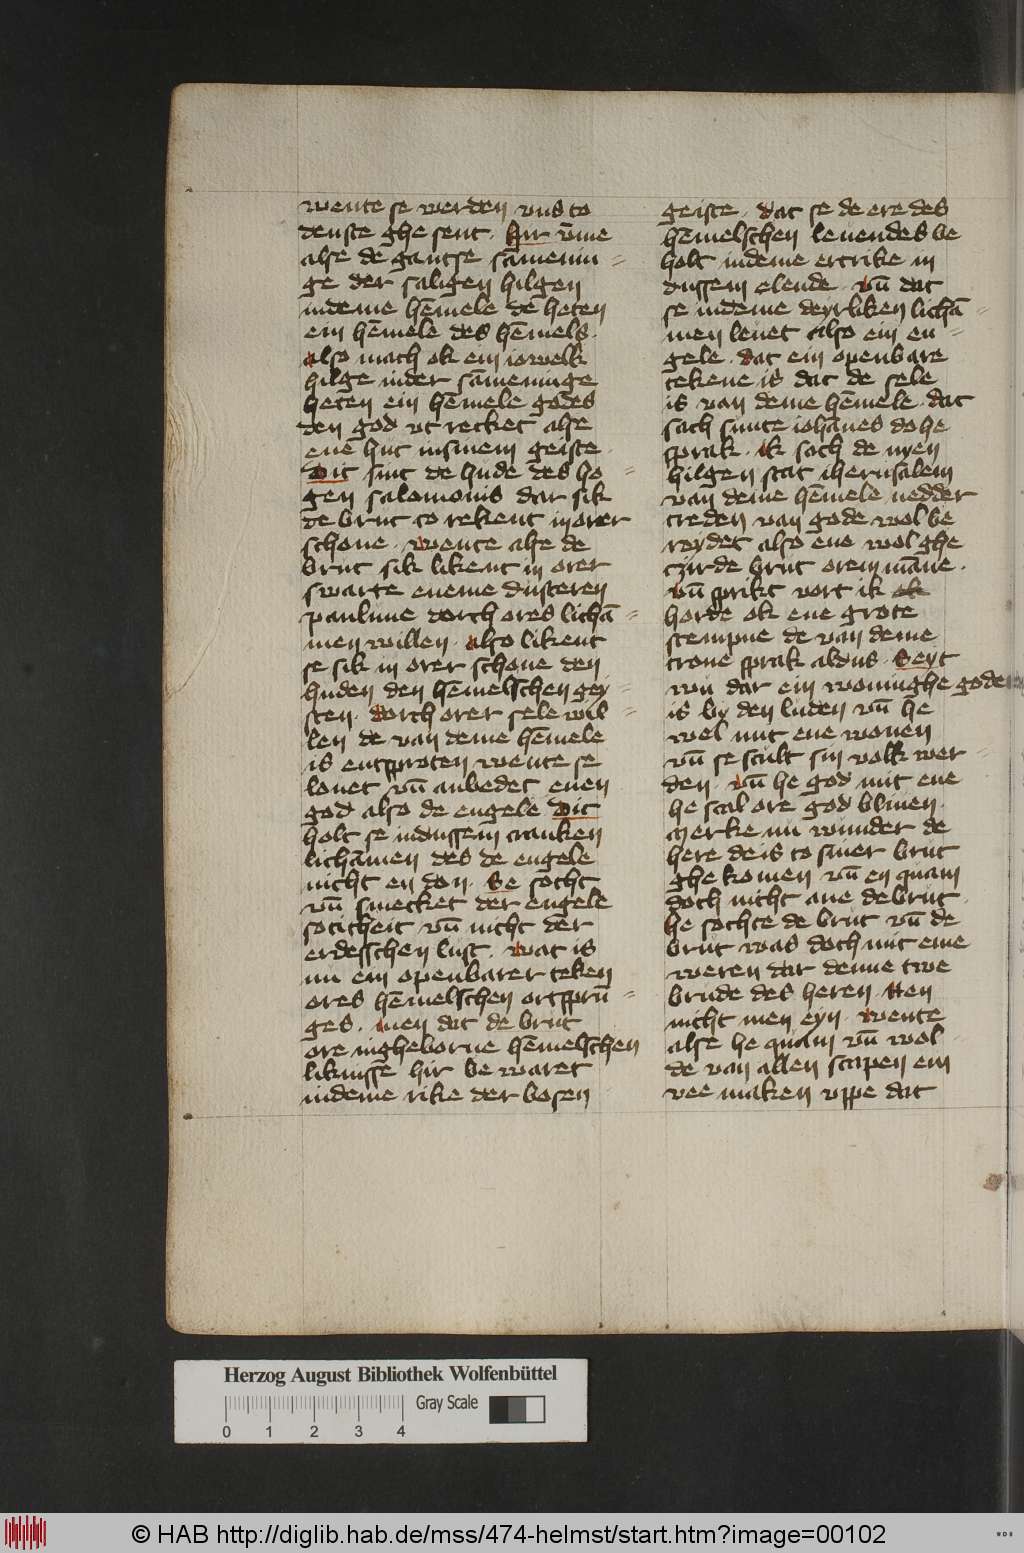 wente se werden vns to
denste ghe sent. Hir v̄me
alse de gantse sāmenin=
ge der saligen hilgen
indeme hēmele de heten
ein hēmele des hēmels.
also mach ok ein iowelk
hilge inder sāmeninge
heten ein hēmele godes
den god vt recket alse
ene hut insinem geiste.
Dit sint de hude des ko=
gen salomonis dar sik
de brut to rekent in orer
schone. wente alse de
brut sik likent in orer
swarte eneme dusteren
paulune dorch ores lichā=
men willen. also likent
se sik in orer schone den
huden den hēmelschen gey=
sten. dorch orer sele wil=
len de van deme hēmele
is entsproten wente se
louet vn̄ anbedet enen
god also de engele Dit
holt se indussem cranken
lichāmen des de engele
nicht en don. Se socht
vn̄ smecket der engele
soticheit vn̄ nicht der
erdesschen lust. wat is
nu ein openbarer teken
ores hēmelschen ortsprū=
ges. men dat de brut
ore ingheborne hēmelschen
liknisse hir be waret
indeme rike der bosen
geiste. dat se de ere des
hēmelschen leuendes be
holt indeme ertrike in
dussem elende. vn̄ dat
se indeme deyrliken lichā=
men leuet also ein en=
gele. dat ein openbare
tekene is dat de sele
is van deme hēmele. dat
sach sunte iohānes do he
sprak. ik sach de nyen
hilgen stat iherusalem
van deme hēmele nedder
treden van gode wol be
reydet also ene wol ghe
czirde brut orem māne.
vn̄ sprikt vort ik ok
horde ok ene grote
stempne de van deme
trone sprak aldus. Seyt
wu dar ein woninghe godes
is by den luden vn̄ he
wel mit ene wonen
vn̄ se scult sin volk wer=
den. vn̄ he god mit ene
he scal ore god bliuen.
Merke nu wunder de
here de is to siner brut
ghe komen vn̄ en quam
doch nicht ane de brut.
he sochte de brut vn̄ de
brut was doch mit eme
weren dar denne twe
brude des heren. Nen
nicht men eyn. wente
alse he quam vn̄ wol=
de van allen scapen ein
vee maken vppe dat
Herzog August Bibliothek Wolfenbüttel
Gray Scale
0 1 2 3 4
© HAB http://diglib.hab.de/mss/474-helmst/start.htm?image=00102